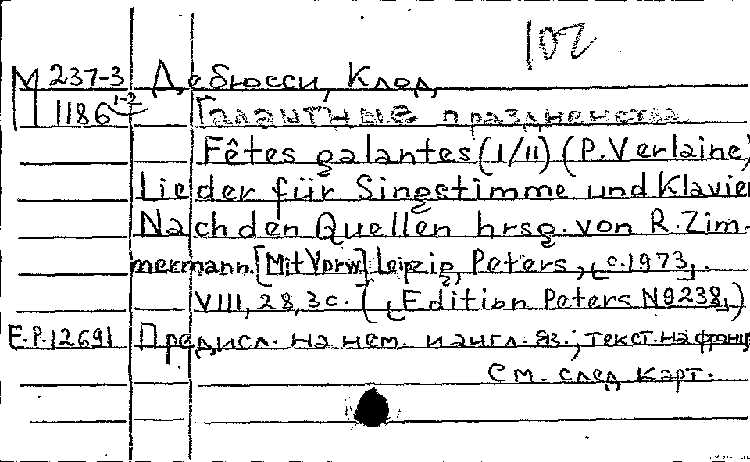 102
М 237-3 Дебюсси, Клод.
1186 1-2 Галантные празднества
Fêtes galantes (I/II) (P. Verlaine)
Lieder für Singstimme und Klavier
Nach den Quellen hrsg. von R. Zim-
mermann. [Mit Vorw.] Leipzig, Peters, [c. 1973].
VIII, 28, 3 с. ([Edition Peters N9238])
E.P.12691 Предисл. на нем. и англ. яз.; текст. на франц
См. след карт.